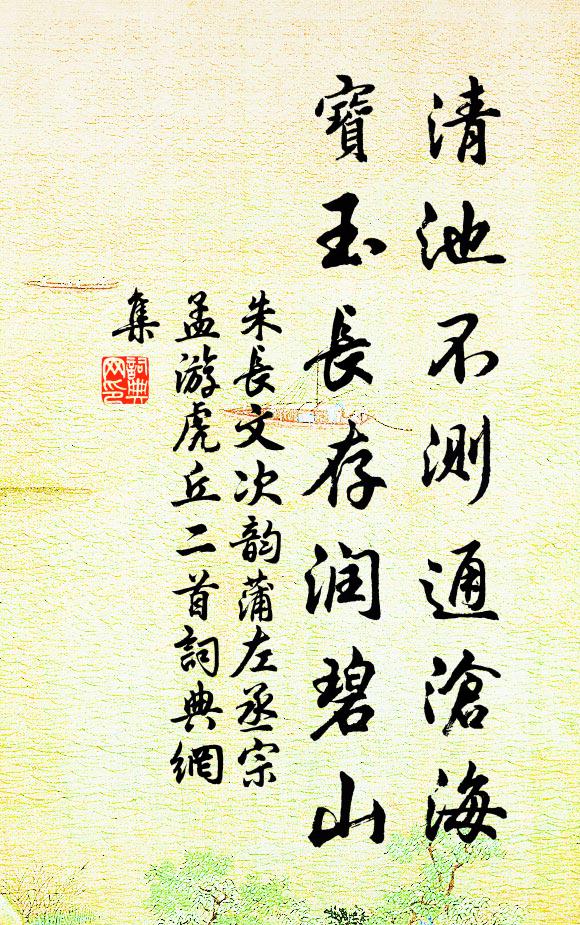 清池不测通滄海
寶玉長存润碧山
朱長文次韵蒲左丞宗
孟游虎丘二首詞典網
集
詞典
网印